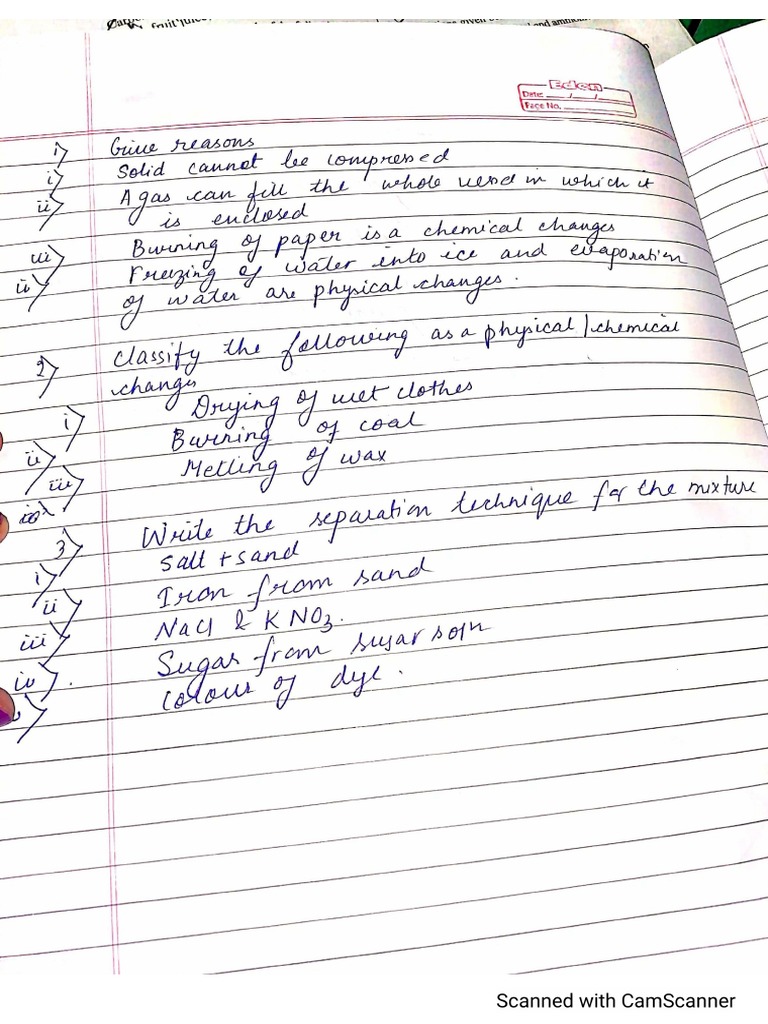 fruit juice,
given
and
Eden
Date: ___/___/___
Page No. ___
1) Give reasons
i) Solid cannot be compressed
ii) A gas can fill the whole vessel in which it
is enclosed
iii) Burning of paper is a chemical changes
iv) Freezing of water into ice and evaporation
of water are physical changes.
2) Classify the following as a physical/chemical
changes
i) Drying of wet clothes
ii) Burning of coal
iii) Melting of wax
3) Write the separation technique for the mixture
i) Salt + sand
ii) Iron from sand
iii) NaCl & KNO3.
iv) Sugar from sugar soln
v) colour of dye.
Scanned with CamScanner